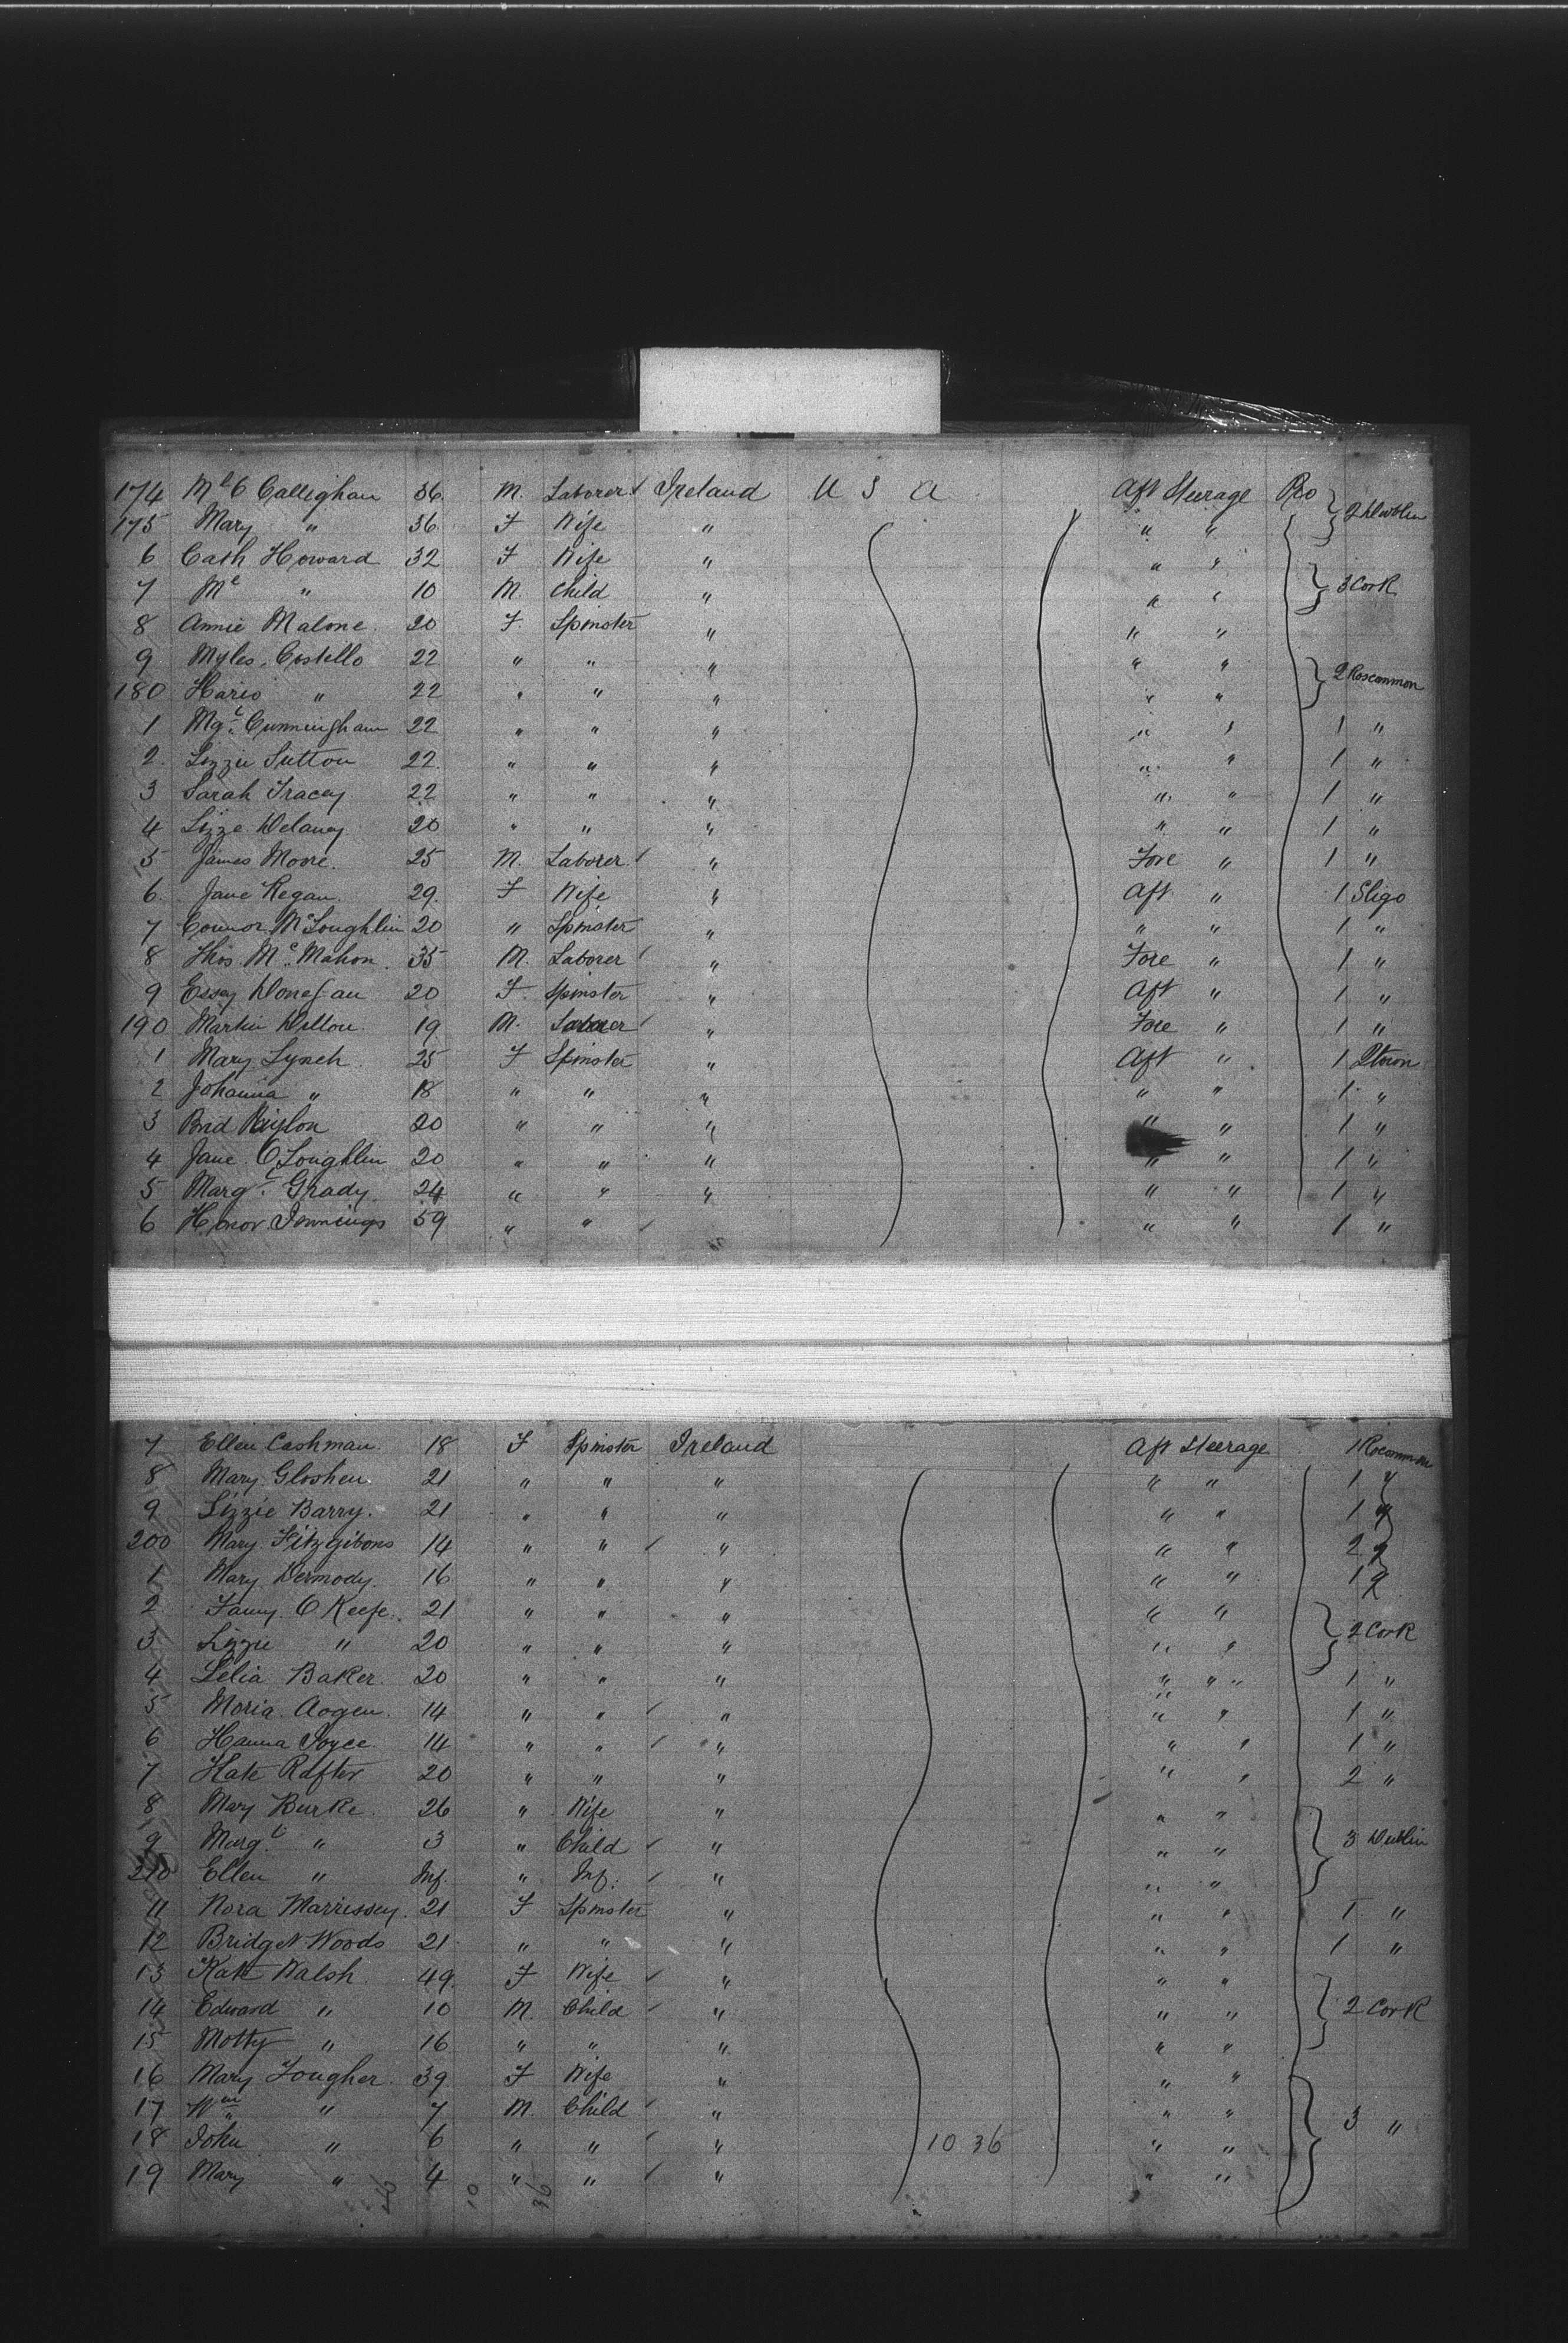 174 Ml O Calleghan 36 M. Laborer Ireland U S A Aft Steerage Pro 2 Dublin
175 Mary " 36 F Wife " " "
6 Cath Howard 32 F Wife " " "
7 Ml " 10 M. Child " " " 3 Cork
8 Annie Malone 20 F. Spinster " " "
9 Myles Costello 22 " " " " " 2 Roscommon
180 " 22 " " " " "
1 Mgt Cunningham 22 " " " " " 1 "
2 Lizzie Sutton 22 " " " " " 1 "
3 Sarah Tracey 22 " " " " " 1 "
4 Lizze Delaney 20 " " " " " 1 "
5 James Moore 25 M. Laborer " Fore " 1 "
6 Jane Regan 29 F Wife " Aft " 1 Sligo
7 Connor McLoughlin 20 " Spinster " " " 1 "
8 Thos McMahon 35 M. Laborer " Fore " 1 "
9 Essey Donegan 20 F. Spinster " Aft " 1 "
190 Martin Dillon 19 M. Laborer " Fore " 1 "
1 Mary Lynch 25 F Spinster " Aft " 1
2 Johanna " 18 " " " " " 1 "
3 Brid 20 " " " " " 1 "
4 Jane O'Loughlin 20 " " " " " 1 "
5 Margt Grady 24 " " " " " 1 "
6 Honor Jennings 59 " " " " 1 "
7 Ellen Cashman 18 F Spinster Ireland Aft Steerage 1 Rocommon
8 Mary Gloshen 21 " " " " " 1 "
9 Lizzie Barry 21 " " " " " 1 "
200 Mary Fitzgibons 14 " " " " " 2 "
1 Mary Dermody 16 " " " " " 1 "
2 Fanny O Keefe 21 " " " " "
3 Lizzie " 20 " " " " " 2 Cork
4 Lelia Baker 20 " " " " " " 1 "
5 Moria Aogen 14 " " " " " 1 "
6 Hanna Joyce 14 " " " " " 1 "
7 Kate Rafter 20 " " " " " 2 "
8 Mary Burke 26 " Wife " " "
9 Margt " 3 " Child " " " 3 Dublin
210 Ellen " Inf. " Inf. " " "
11 Nora Marrissey 21 F Spinster " " " 1 "
12 Bridget Woods 21 " " " " " 1 "
13 Kate Walsh 49 F Wife " " "
14 Edward " 10 M. Child " " " 2 Cork
15 Motty " 16 " " " " "
16 Mary Fougher 39 F Wife " " "
17 Wm " 7 M. Child " " " 3 "
18 John " 6 " " " 10 36 " "
19 Mary " 4 " " " " "
10 36